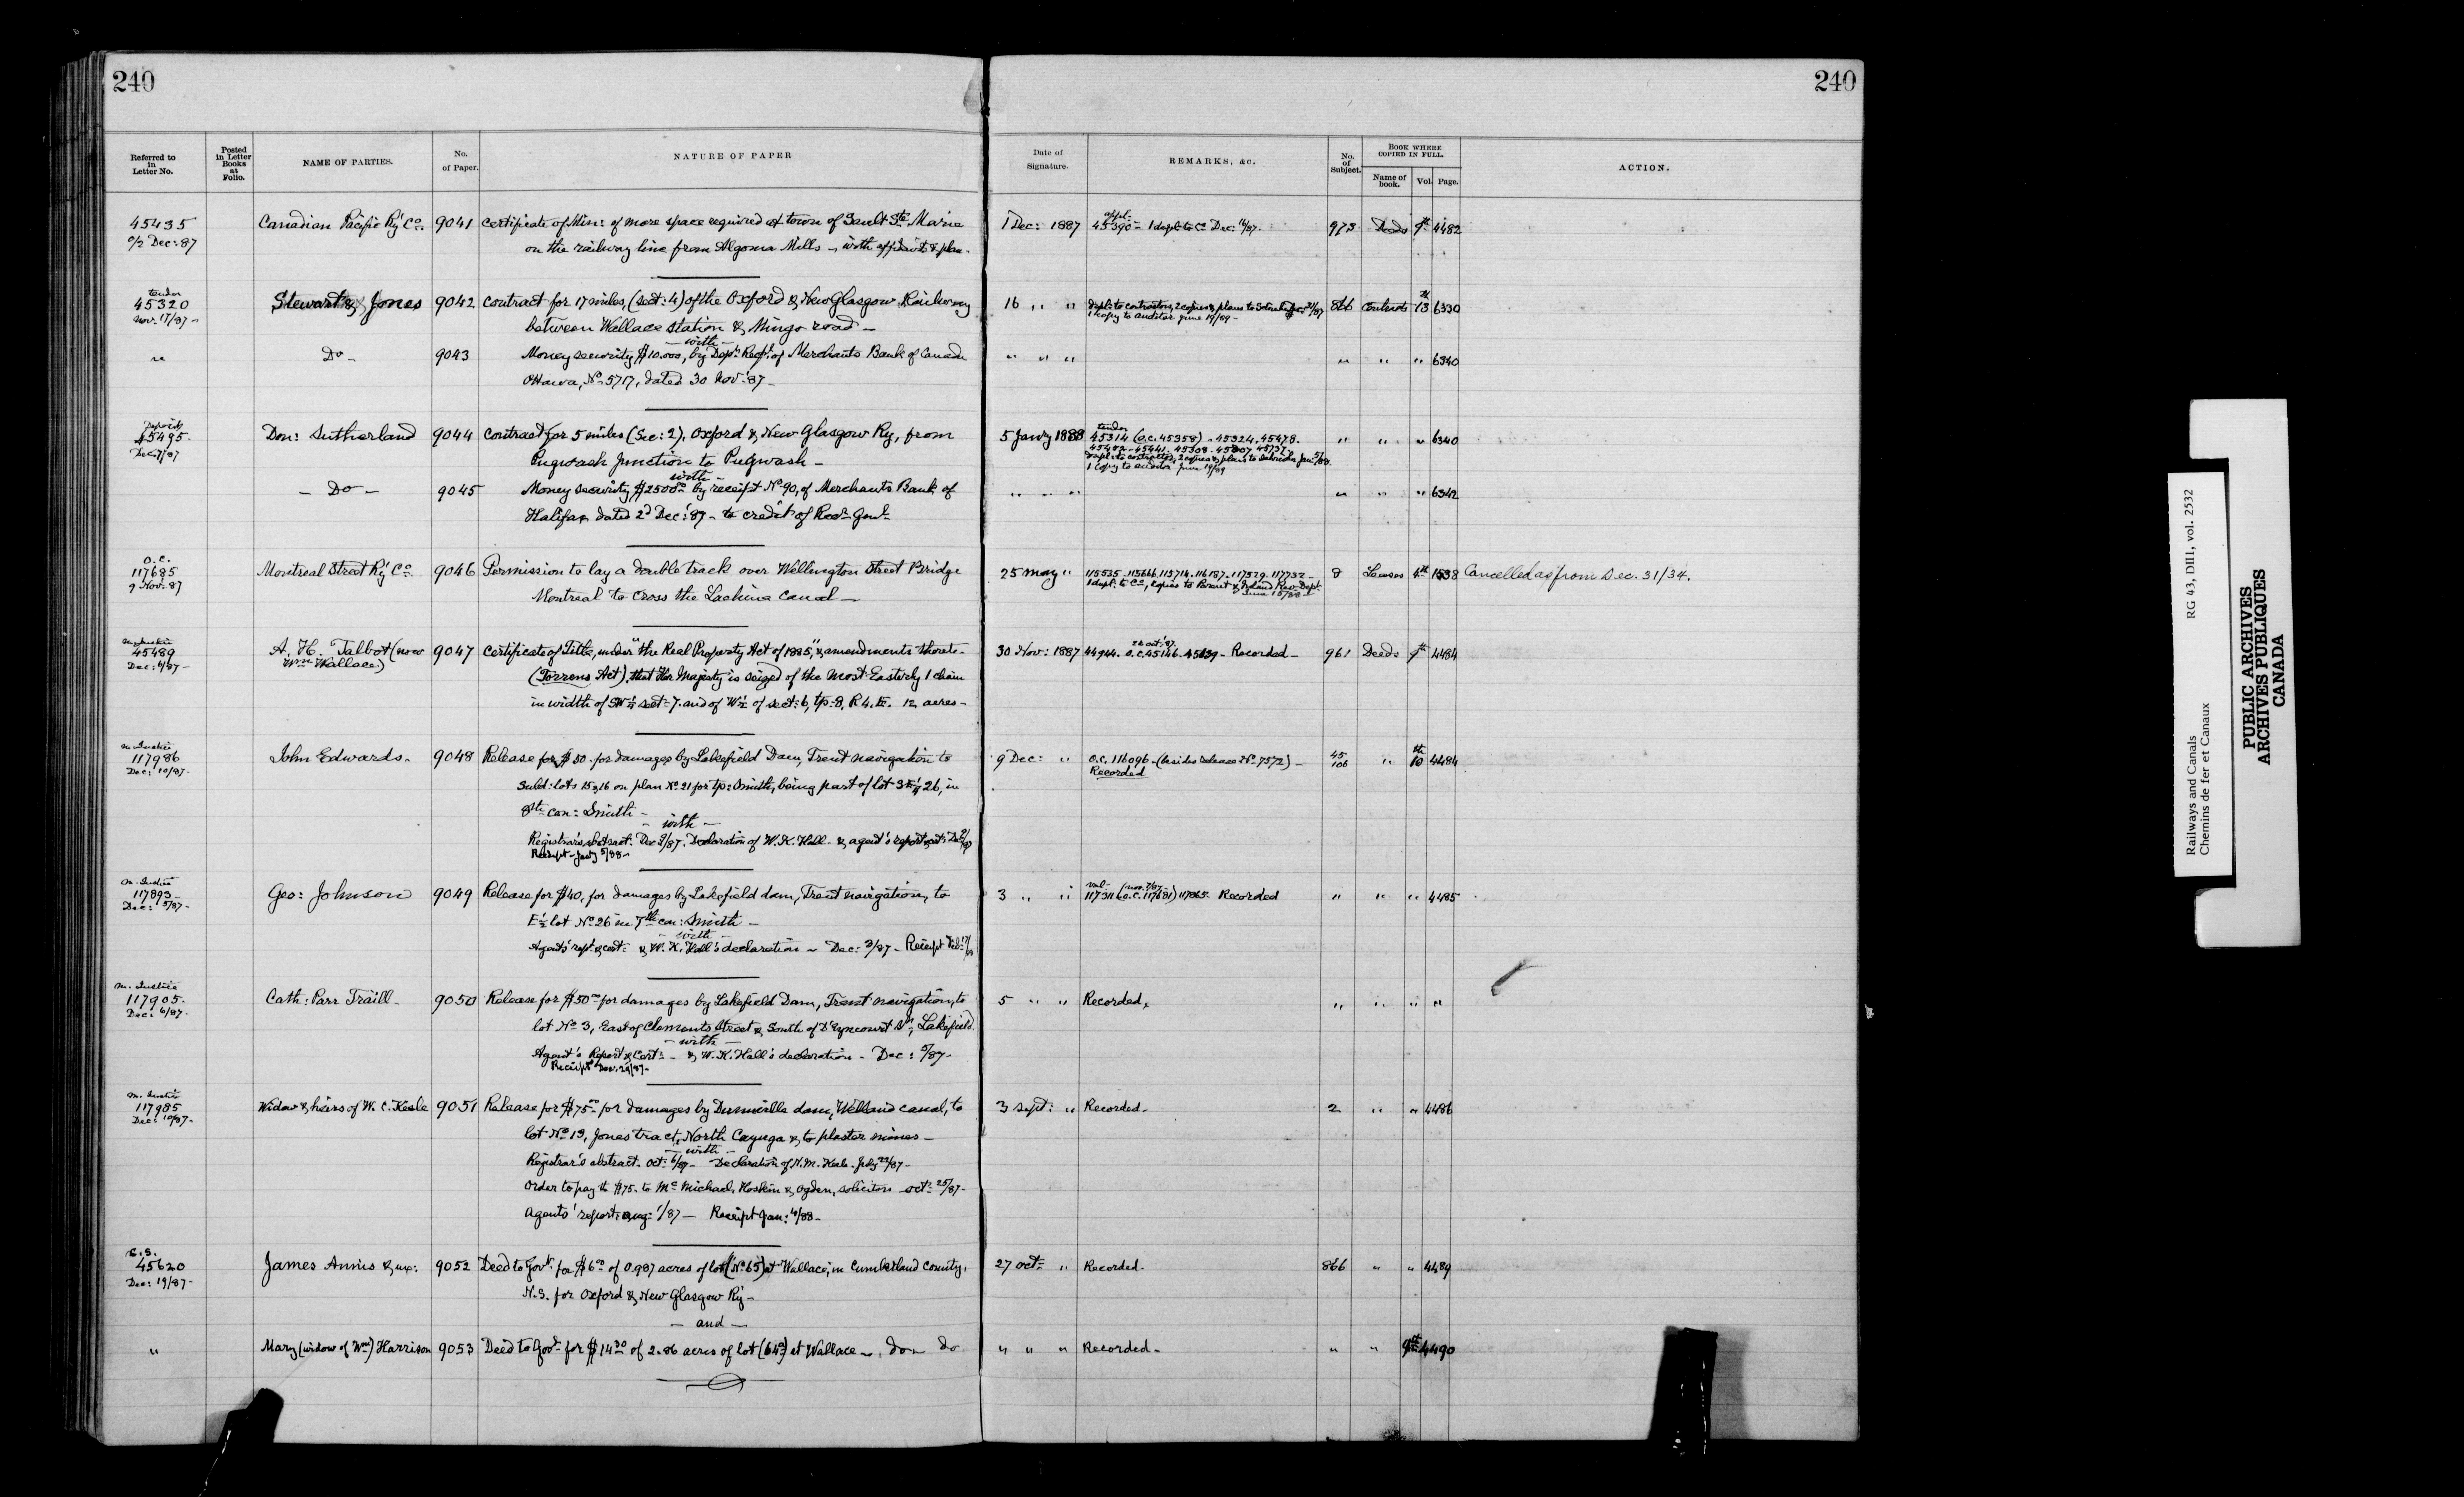 240
240
Referred to in Letter No.
Posted in Letter Books at Folio.
NAME OF PARTIES.
No. of Paper.
NATURE OF PAPER
Date of Signature.
REMARKS, &c.
No. of Subject.
BOOK WHERE COPIED IN FULL.
Name of book.
Vol.
Page.
ACTION.
45435 Canadian Pacific Ry Co. 9041 Certificate of Min: of more space required at town of Sault Ste Marie 1 Dec: 1887 45390 - 1 dupl: to Co Dec: 16/87. 973 Deeds 9th 4482
o/2 Dec: 87 on the railway line from Algoma Mills - with affidavit & plan -
tender
45320 Stewart & Jones 9042 Contract for 17 miles, (sect: 4) of the Oxford & New Glasgow Railway 16 " " 866 Contracts 13 6330
Nov. 17/87 - between Wallace station & Mingo road - 1 copy to auditor June 19/89 -
- with -
" Do - 9043 Money security $10.000, by Dept Rect of Merchants Bank of Canada " " " " " " 6340
Ottawa, No 5717, dated 30 Nov: 87 -
45495 Don: Sutherland 9044 Contract for 5 miles (Sec: 2), Oxford & New Glasgow Ry, from 5 Janry 1888 tender 45314 (O.C. 45358) - 45324. 45478. " " " 6340
Dec. 7/87 Pugwash Junction to Pugwash -
1 copy to auditor June 19/89
with -
- Do - 9045 Money security $2500 by receipt No 90, of Merchants Bank of " " " " " " 6342
Halifax dated 2d Dec: 87 - to credit of Recr Genl
O.C.
117685 Montreal Street Ry Co 9046 Permission to lay a double track over Wellington Street Bridge 25 May " 115535. 113666. 113714. 116187. 117329. 117732 - 8 Leases 4th 1538 Cancelled as from Dec. 31/34.
9 Nov. 87 Montreal to cross the Lachine Canal -
M. Justice
45489 A. H. Talbot (now 9047 Certificate of Title, under "the Real Property Act of 1885", & amendments thereto - 30 Nov: 1887 44944. O.C. 45146. - Recorded - 961 Deeds 9th 4484
Dec: 6/87 - Wm Wallace) (Torrens Act), that Her Majesty is seized of the most Easterly 1 chain
in width of SW¼ sect: 7. and of W½ of sect: 6, tp: 8, R 4. E. 12 acres -
M. Justice
117986 John Edwards. 9048 Release for $50. for damages by Lakefield Dam, Trent navigation to 9 Dec: " O.C. 116096 - (besides release No 7572) - 45 106 " 10 4484
Dec: 10/87 - Subd: lots 15 & 16 on plan No 21 for tp: Smith, being part of lot 26, in Recorded
8th con: Smith -
- with -
Registrar's abstract. Dec 9/87. Declaration of W. K. Hall - & agent's report
Receipt - Janry 5/88 -
M. Justice
117893 - Geo: Johnson 9049 Release for $40, for damages by Lakefield dam, Trent navigation, to 3 " " (O.C. 117681) 117865. Recorded " " " 4485
Dec: 5/87 - E½ lot No 26 in 7th con: Smith -
- with -
Agents' rept & cert: & W. K. Hall's declaration - Dec: 3/87 - Receipt
M. Justice
117905. Cath: Parr Traill - 9050 Release for $50 for damages by Lakefield Dam, Trent navigation, to 5 " " Recorded " " " "
Dec: 6/87 - lot No 3, East of Clements Street & South of D'Eyncourt St, Lakefield
- with -
Agent's Report & Cert: - & W. K. Hall's declaration - Dec: 5/87 -
Receipt Dec. 29/87 -
M. Justice
117985 Widow & heirs of W. C. Keele 9051 Release for $75 for damages by Dunnville dam, Welland canal, to 3 Sept: " Recorded - 2 " " 4486
Dec: 10/87 - lot No 19, Jones tract, North Cayuga & to plaster mines -
- with -
Registrar's abstract. Oct: 6/87 - Declaration of N. M. Keele. July 22/87 -
Order to pay the $75. to McMichael, Hoskin & Ogden, solicitors - Oct: 25/87 -
Agents' report: Aug: 1/87 - Receipt Jan: 4/88 -
C.S.
45620 James Annis & ux: 9052 Deed to Govt for $6 of 0.987 acres of lot (No 65) at Wallace, in Cumberland County, 27 Oct: " Recorded. 866 " " 4489
Dec: 19/87 - N.S. for Oxford & New Glasgow Ry -
- and -
" Mary (widow of Wm) Harrison 9053 Deed to Govt for $14 30 of 2.86 acres of lot (64) at Wallace - do - do " " " Recorded - " " 9th 4490
Railways and Canals RG 43, DIII, vol. 2532
Chemins de fer et Canaux
PUBLIC ARCHIVES
ARCHIVES PUBLIQUES
CANADA